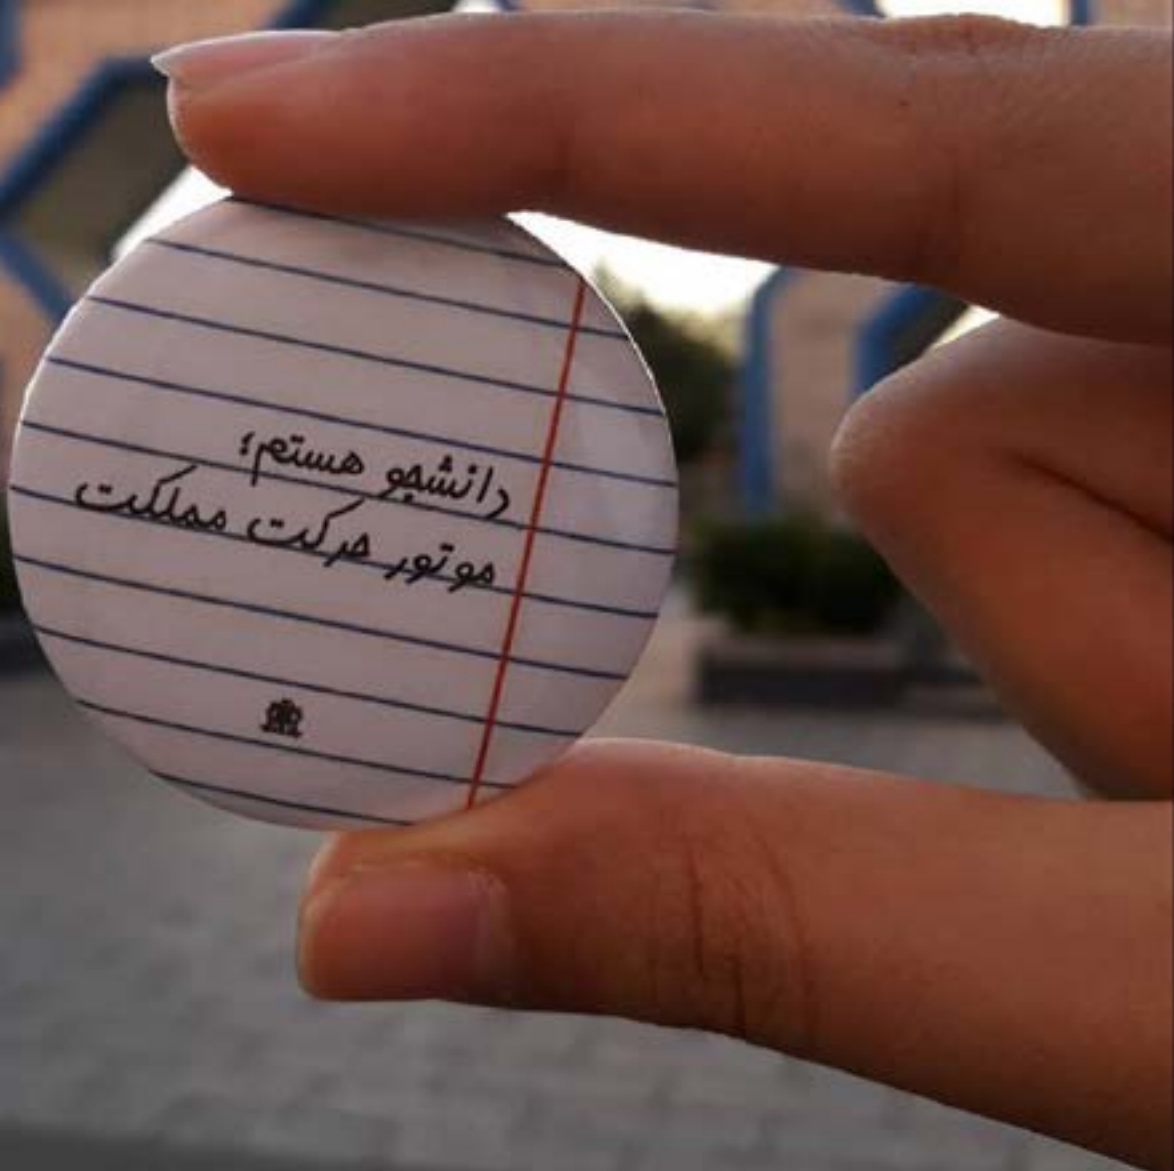 دانشجو هستم؛
موتور حرکت مملکت